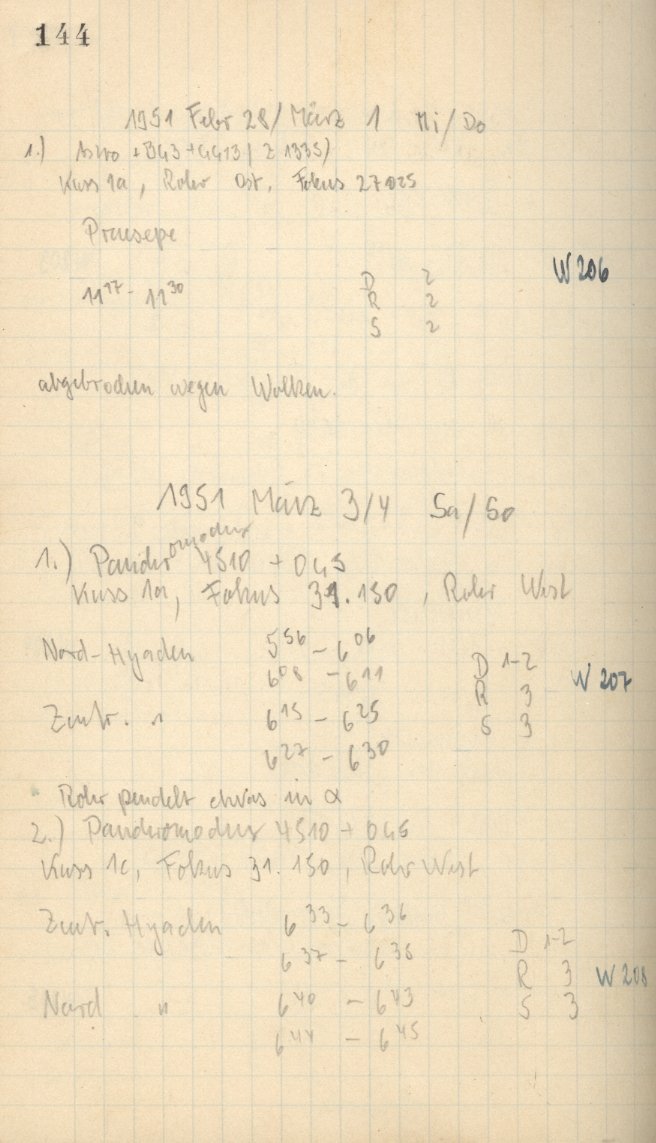 144
1951 Febr 28/März 1 Mi/Do
1.) Astro + BG3 + GG13 (Z 1335)
Kass 1a, Rohr Ost, Fokus 27025
Praesepe
11¹⁷ - 11³⁰ D 2
R 2
S 2
W 206
abgebrochen wegen Wolken.
1951 März 3/4 Sa/So
1.) Panchromodux 4510 + OG5
Kass 1a, Fokus 31.150, Rohr West
Nord-Hyaden 5⁵⁶ - 6⁰⁶
6⁰⁸ - 6¹¹ D 1-2
R 3 W 207
Zentr. " 6¹⁵ - 6²⁵ S 3
6²⁷ - 6³⁰
Rohr pendelt etwas in α
2.) Panchromodux 4510 + OG5
Kass 1c, Fokus 31.150, Rohr West
Zentr. Hyaden 6³³ - 6³⁶
6³⁷ - 6³⁸ D 1-2
R 3 W 208
Nord " 6⁴⁰ - 6⁴³ S 3
6⁴⁴ - 6⁴⁵